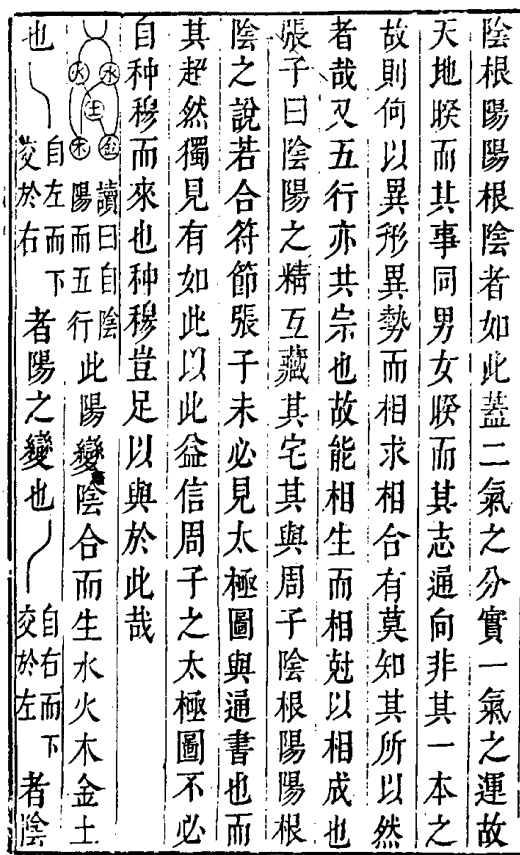 陰根陽陽根陰者如此蓋二氣之分實一氣之運故
天地睽而其事同男女睽而其志通向非其一本之
故則何以異形異勢而相求相合有莫知其所以然
者哉又五行亦共宗也故能相生而相尅以相成也
張子曰陰陽之精互藏其宅其與周子陰根陽陽根
陰之說若合符節張子未必見太極圖與通書也而
其超然獨見有如此以此益信周子之太極圖不必
自种穆而來也种穆豈足以與於此哉
水火土金木
讀曰自陰
陽而五行
此陽變陰合而生水火木金土
也
自左而下
交於右
者陽之變也
自右而下
交於左
者陰